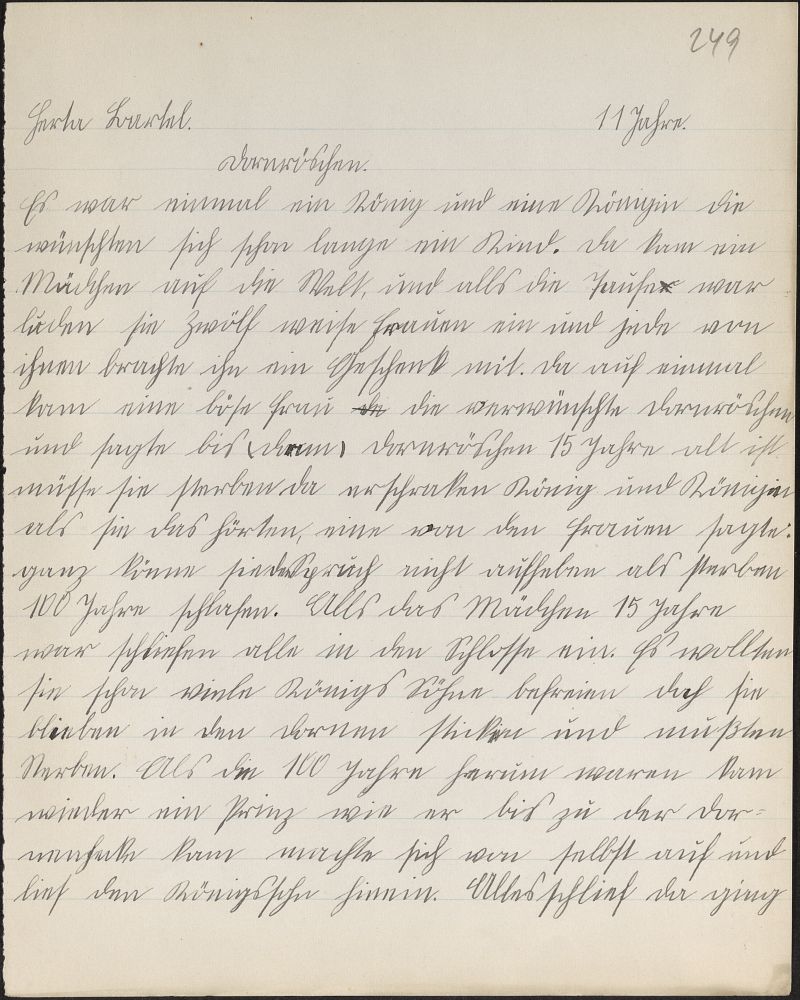 249
Herta Bartel. 11 Jahre.
Dornröschen.
Es war einmal ein König und eine Königin die
wünschten sich schon lange ein Kind. Da kam ein
Mädchen auf die Welt, und alls die Taufe war
luden sie zwölf weise Frauen ein und jede von
ihnen brachte ihn ein Geschenk mit. Da auf einmal
kam eine böse Frau die verwünschte Dornröschen
und sagte bis (dann) Dornröschen 15 Jahre alt ist
müsse sie sterben da erschraken König und Königin
als sie das hörten, eine von den Frauen sagte:
ganz könne sie den Spruch nicht aufheben als sterben
100 Jahre schlafen. Alls das Mädchen 15 Jahre
war schliefen alle in den Schlosse ein. Es wollten
sie schon viele Königs Söhne befreien doch sie
blieben in den Dornen stecken und mußten
sterben. Als die 100 Jahre herum waren kam
wieder ein Prinz wie er bis zu der Dor-
nenhecke kam machte sich von selbst auf und
lief den Königssohn hinein. Alles schlief da ging